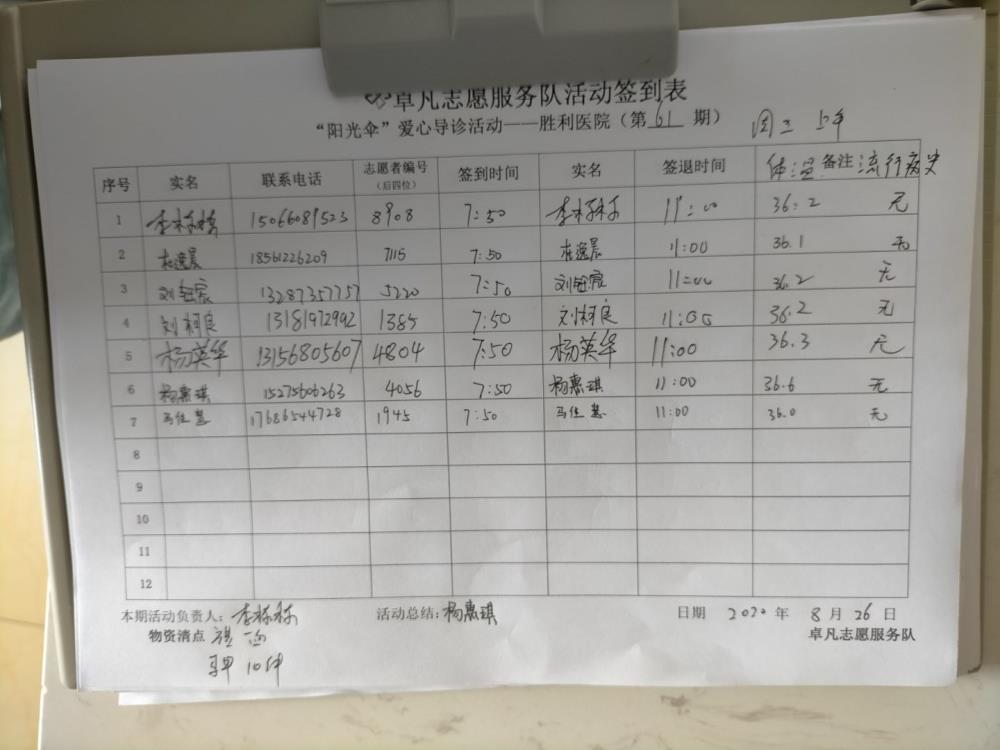 卓凡志愿服务队活动签到表
“阳光伞”爱心导诊活动——胜利医院（第 61 期） 周三 上午
序号 实名 联系电话 志愿者编号（后四位） 签到时间 实名 签退时间 体温 备注 流行病史
1 15066089523 8908 7:50 11:00 36.2 无
2 杜逸晨 18561226209 7115 7:50 杜逸晨 11:00 36.1 无
3 刘钰宸 13287357757 5220 7:50 刘钰宸 11:00 36.2 无
4 刘柯良 13181972992 1385 7:50 刘柯良 11:00 36.2 无
5 杨英华 13156805607 4804 7:50 杨英华 11:00 36.3 无
6 杨惠琪 15275606263 4056 7:50 杨惠琪 11:00 36.6 无
7 马佳慧 17686544728 1945 7:50 马佳慧 11:00 36.0 无
8
9
10
11
12
本期活动负责人： 活动总结：杨惠琪 日期 2020 年 8 月 26 日
物资清点 卓凡志愿服务队
马甲 10件